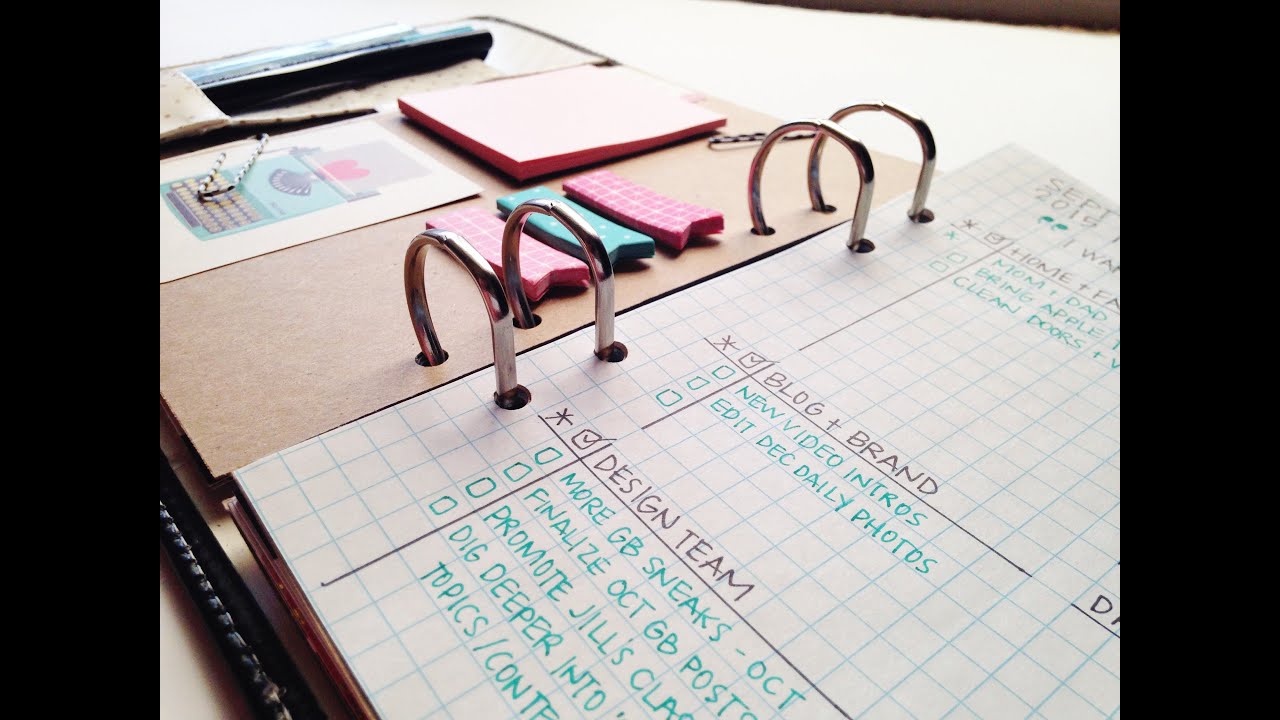 SEPT
* HOME +
MOM + DAD
BRING APPLE
CLEAN DOORS +
* BLOG + BRAND
NEW VIDEO INTROS
EDIT DEC DAILY PHOTOS
* DESIGN TEAM
MORE GB SNEAKS - OCT
FINALIZE OCT GB POSTS
PROMOTE JILL'S
DIG DEEPER INTO
TOPICS /